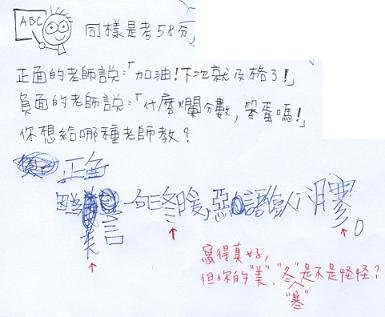 ABC
同樣是考58分,
正面的老師說:「加油!下次就及格了!」
負面的老師說:「什麼爛分數,笨蛋嗎!」
你想給哪種老師教?
正面
美言一句三冬暖,惡語傷人
寫得真好,
但你的"美"、"冬"是不是怪怪?
"寒"